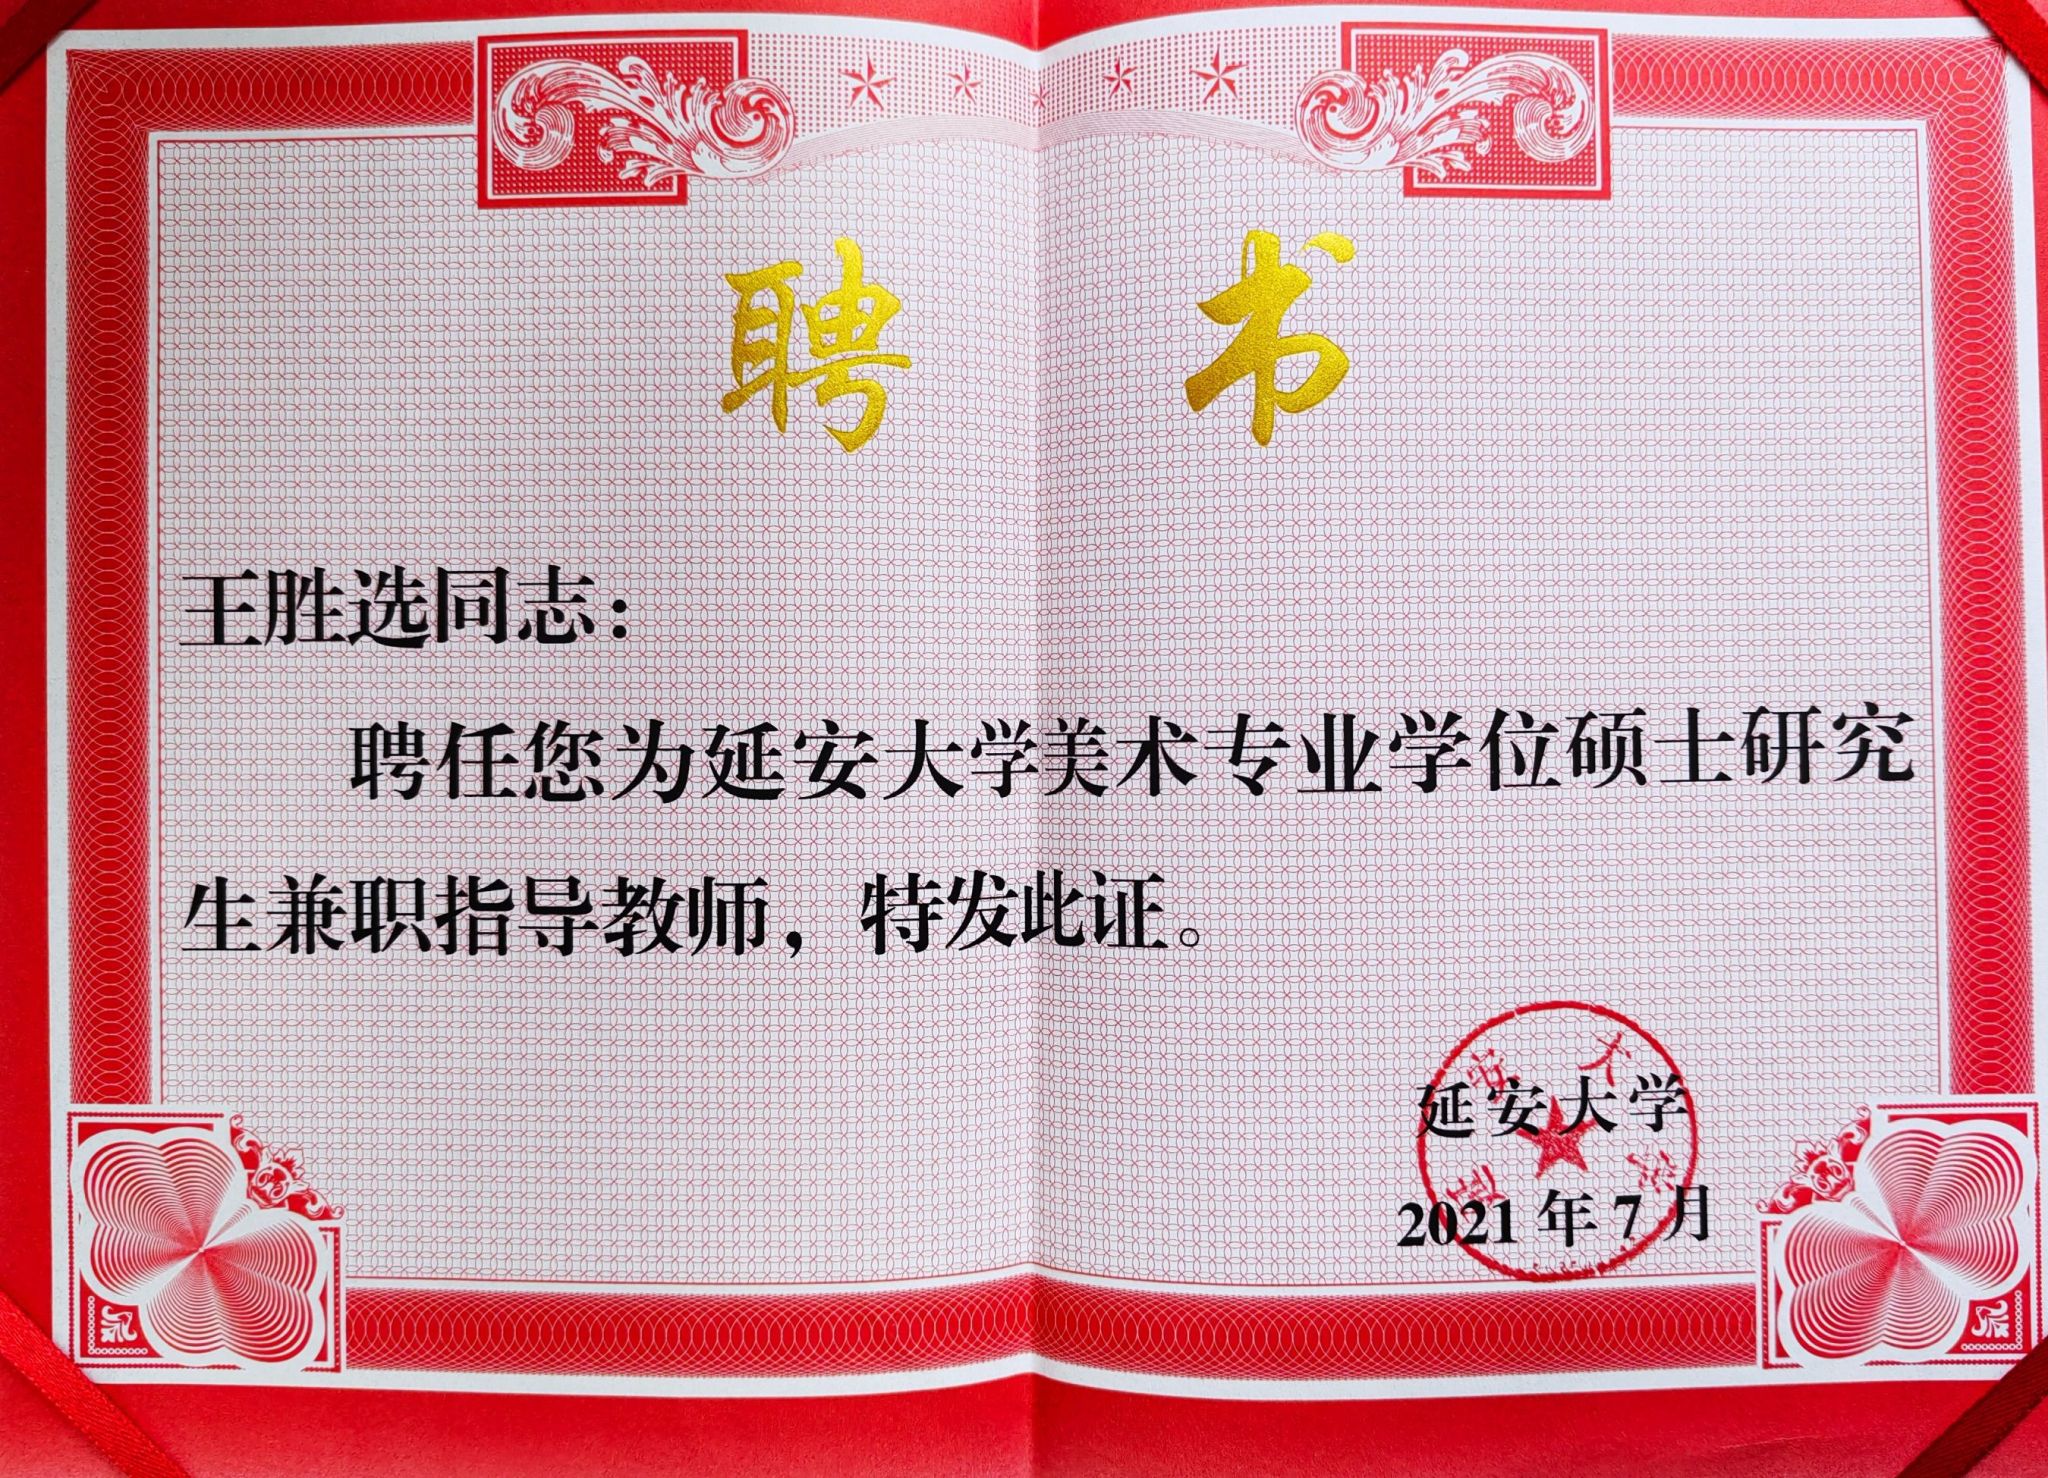 聘 书
王胜选同志：
聘任您为延安大学美术专业学位硕士研究
生兼职指导教师，特发此证。
延安大学
2021年7月